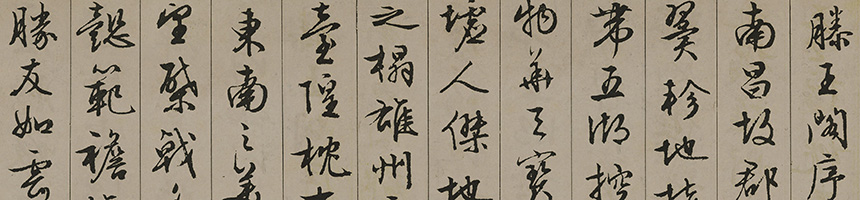 滕王閣序
南昌故郡
翼軫地接
帶五湖控
物華天寶
墟人傑地
之榻雄州
臺隍枕
東南之美
望棨戟
懿範襜
勝友如雲